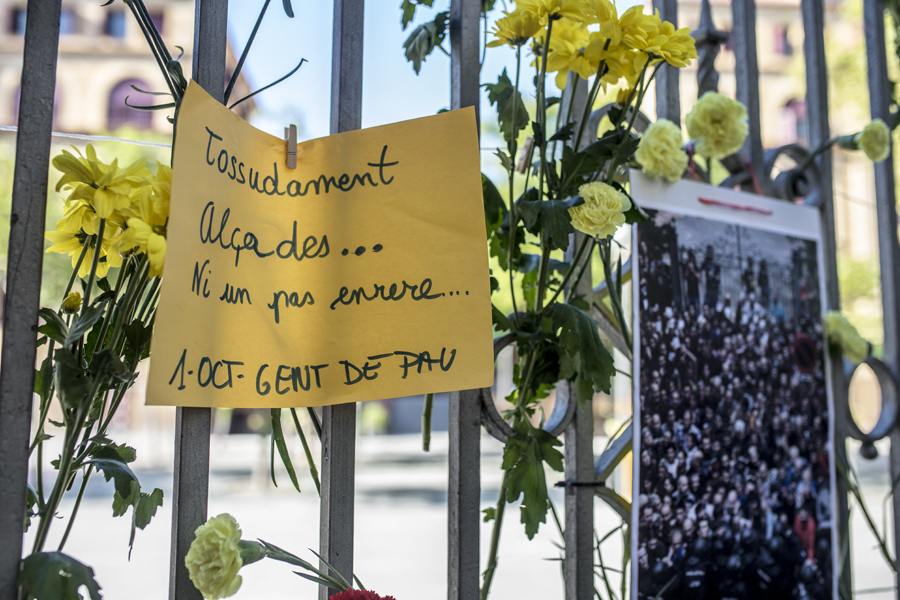 Tossudament
Alçades...
Ni un pas enrere....
1-OCT- GENT DE PAU